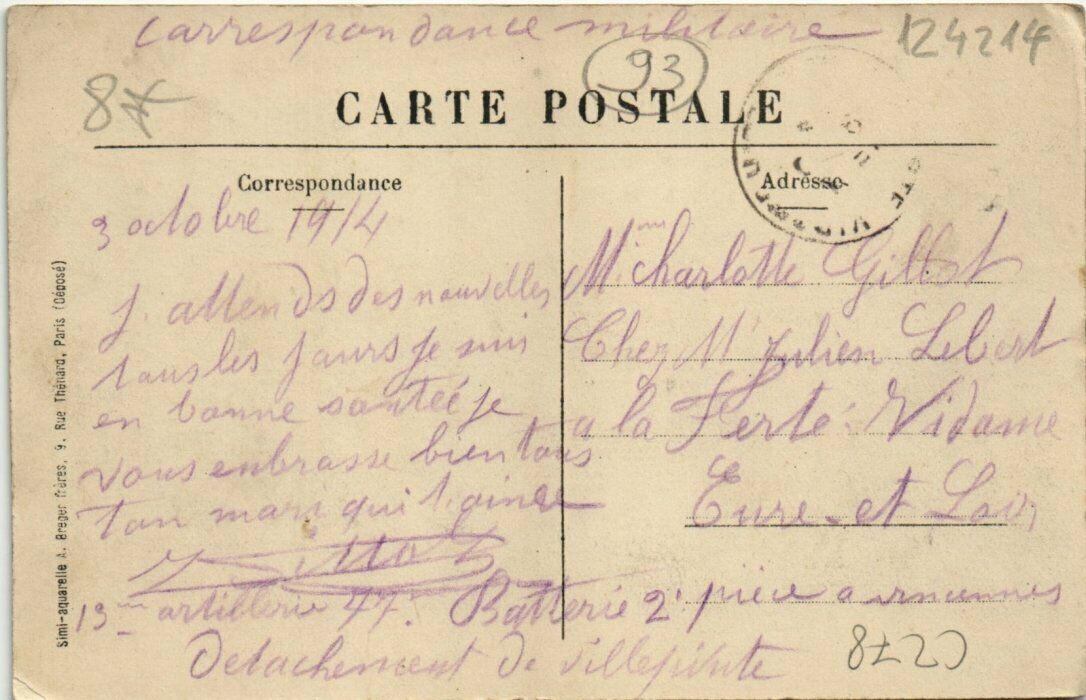 Carrespondance militaire
124214
93
8
CARTE POSTALE
Correspondance
Adresse
3 octobre 1914
j. attends des nouvelles
tous les jours je suis
en bonne santée je
vous enbrasse bien tous
ton mari qui t'aime
Gillot
13me artillerie 47e Batterie 2e pièce a vincennes
Detachement de villepinte
Mme Charlotte Gillot
Chez Mr Julien Lebert
a la Ferté-Vidame
Eure-et Loir
8720
Simi-aquarelle A. Breger frères, 9, Rue Thénard, Paris (Déposé)